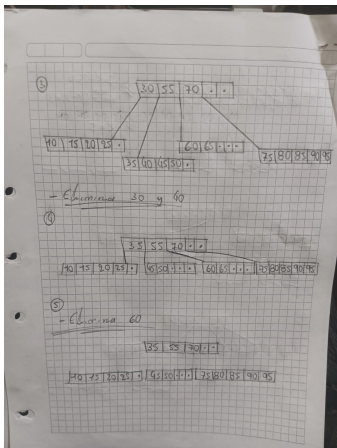 3
30 | 55 | 70 | · | ·
10 | 15 | 20 | 25 | ·
60 | 65 | · | · | ·
35 | 40 | 45 | 50 | ·
75 | 80 | 85 | 90 | 95
- Eliminar 30 y 40
4
35 | 55 | 70 | · | ·
10 | 15 | 20 | 25 | · 45 | 50 | · | · | · 60 | 65 | · | · | · 80 | 85 | 90 | 95
5
- Elimina 60
35 | 55 | 70 | · | ·
10 | 15 | 20 | 25 | · 45 | 50 | · | · | · 75 | 80 | 85 | 90 | 95